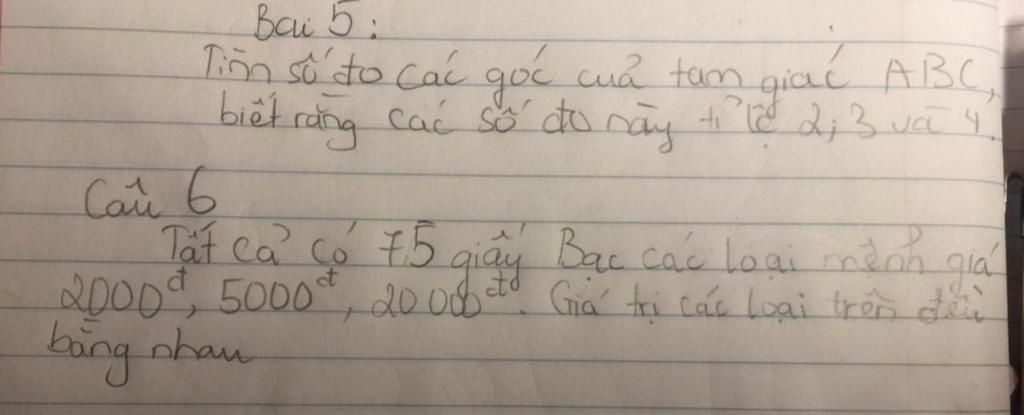 Bài 5:
Tính số đo các góc của tam giác ABC,
biết rằng các số đo này tỉ lệ 2; 3 và 4.
Câu 6
Tất cả có 75 giấy Bạc các loại mệnh giá
2000đ, 5000đ, 20000đ. Giá trị các loại trên đều
bằng nhau